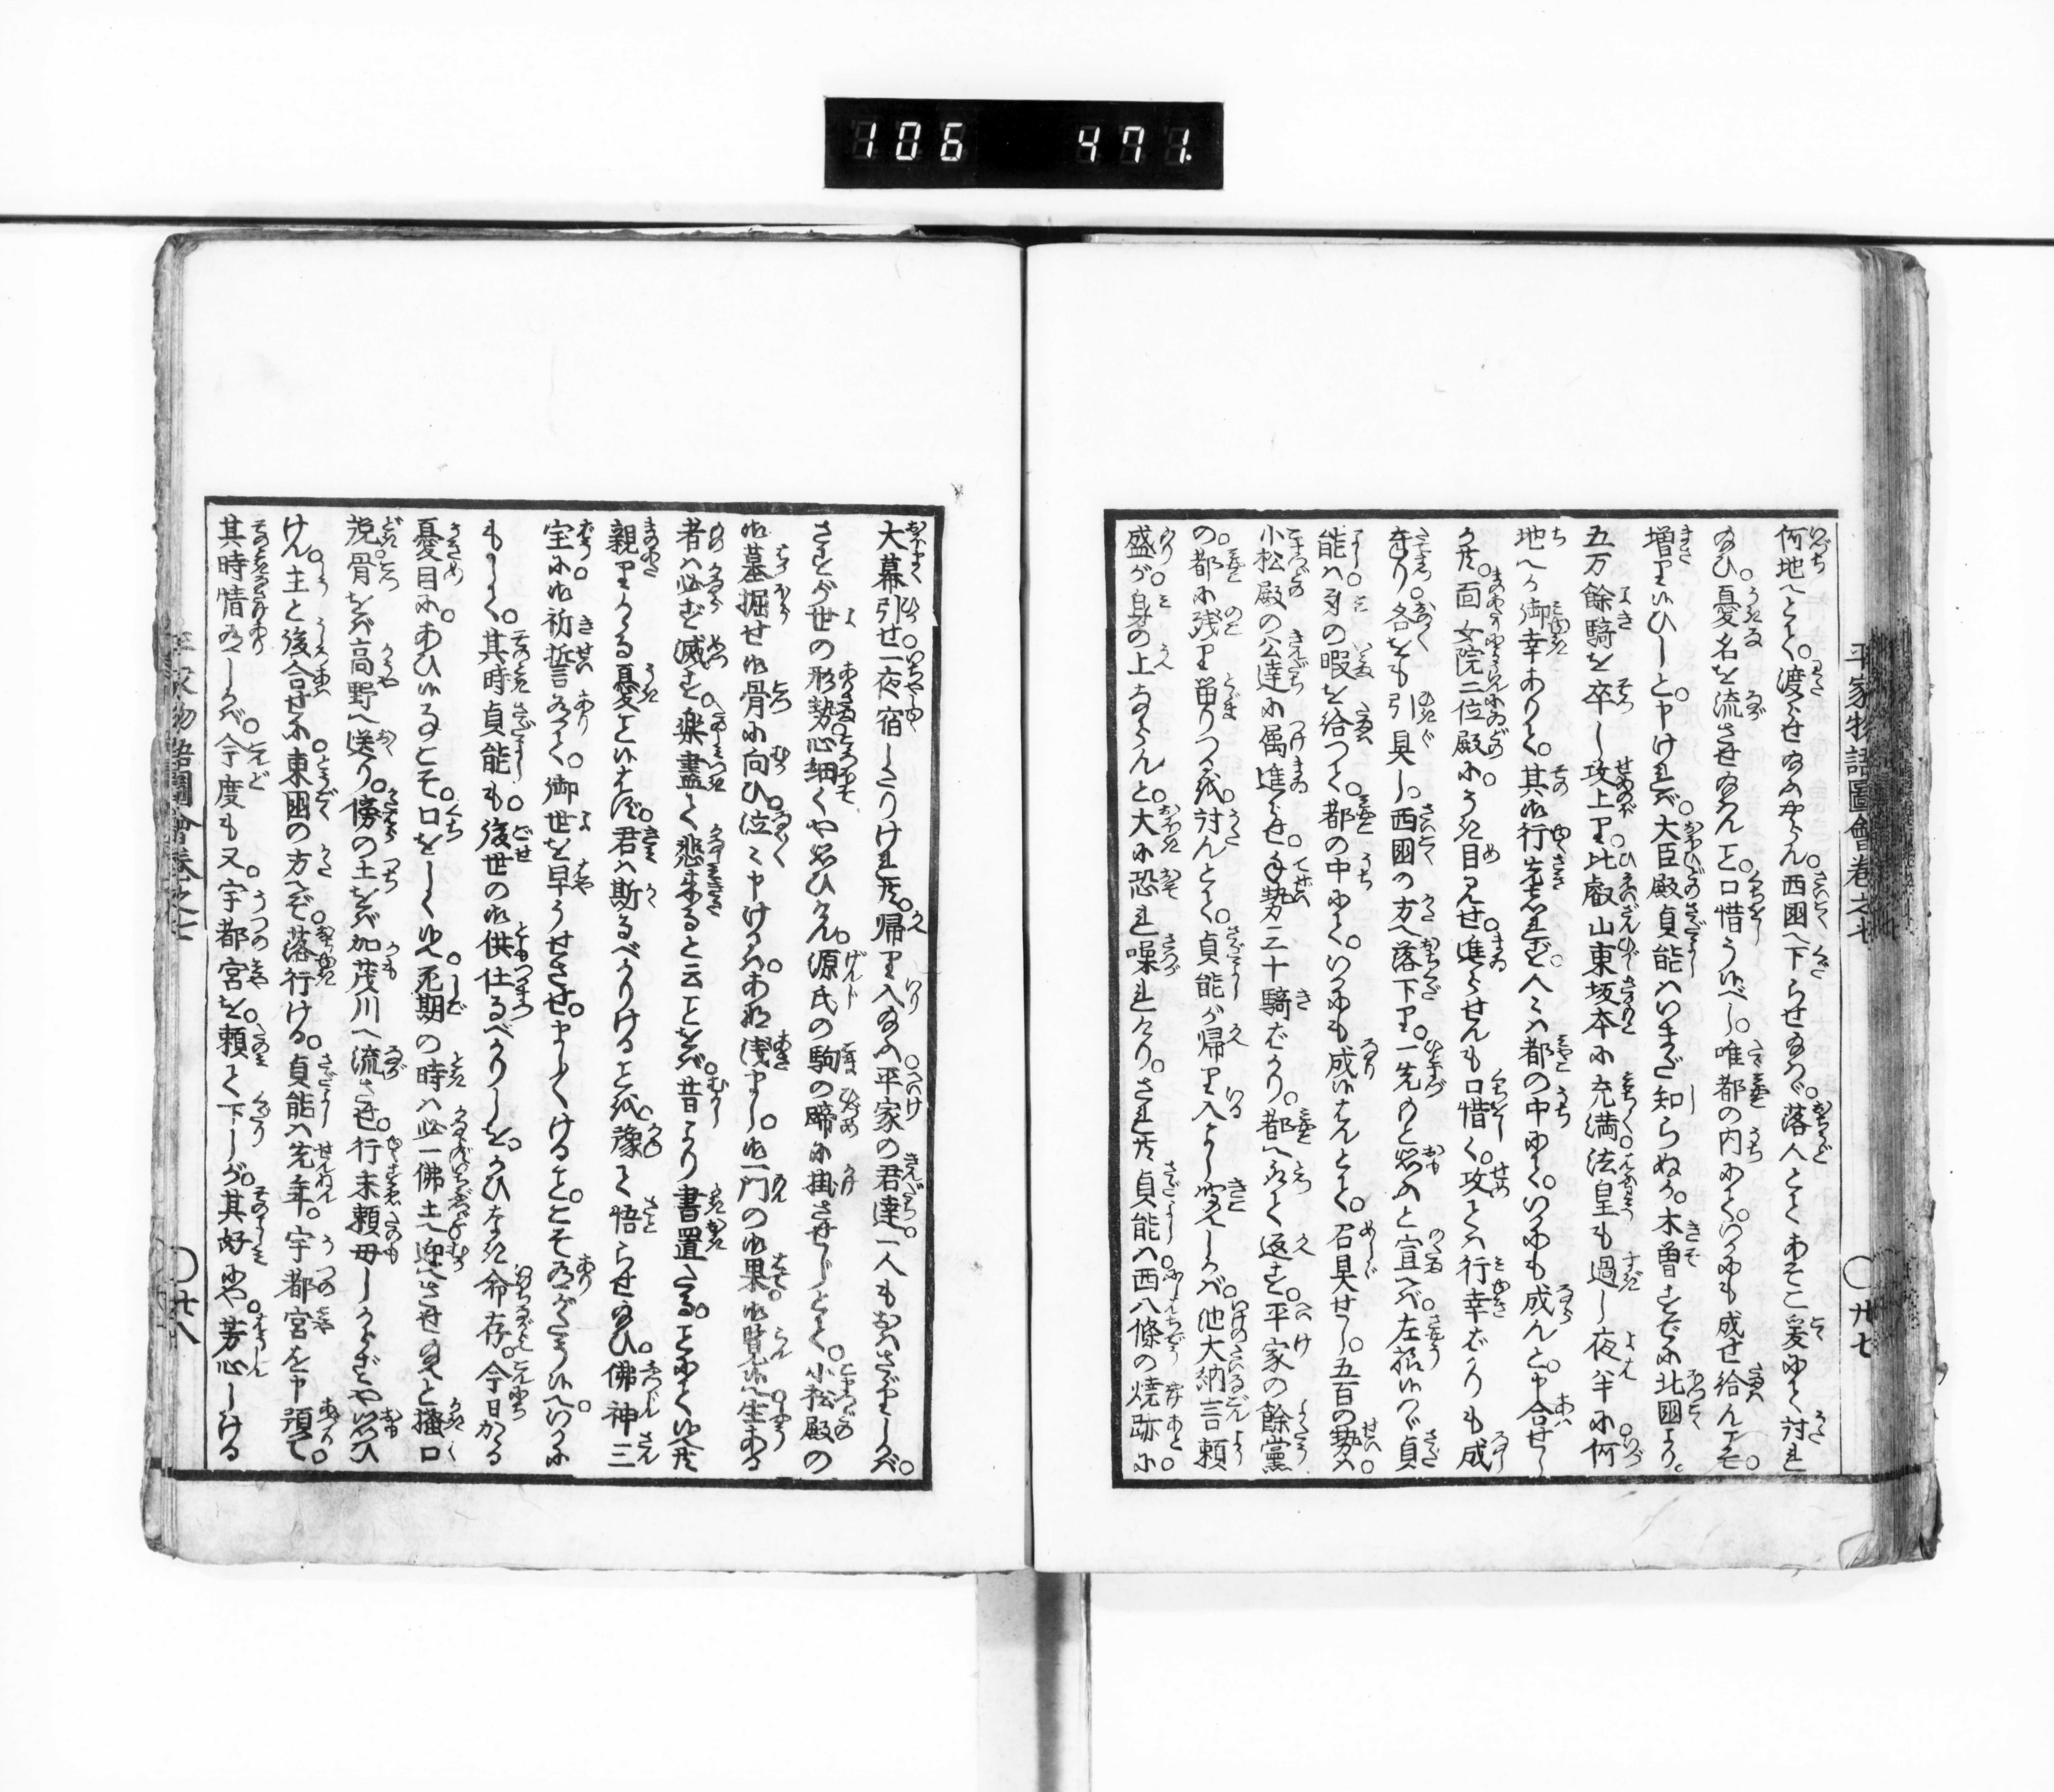 106 471.
平家物語圖會卷之七
〇廿七
何地へとて。渡らせ給ふやらん。西國へ下らせ給はゞ。落人とてあそこ爰にて討れ
給ひ。憂名を流させ給はんこと口惜う候べし。唯都の内にていかにも成せ給んこそ。
増り候ひしと。申ければ。大臣殿貞能はいまだ知らぬか。木曽すでに北國より。
五万餘騎を卒し攻上り。比叡山東坂本に充満。法皇も過し夜半に何
地へか御幸ありて。其御行先しれず。人々は都の中にて。いかにも成んと。申合せし
かども。面女院二位殿に。うき目見せ進らせんも口惜く。攻ては行幸ばかりも成
奉り。各をも引具し。西國の方へ落下り。一先のと思ふと宣へば。左様候はゞ貞
能は身の暇を給つて。都の中にて。いかにも成候はんとて。召具せし。五百の勢は。
小松殿の公達に属進らせ。手勢三十騎ばかり。都へ取て返す。平家の餘黨
の。都に残り留りつるを。討んとて。貞能が帰り入よし聞えしかば。池大納言頼
盛が身の上ならんと。大に恐れ噪れけり。されども貞能は西八條の焼跡に。
大幕引せ。一夜宿したりけれども。帰り入給ふ平家の君達。一人もおはさゞりしかば。
さすが世の形勢心細くや思ひけん。源氏の駒の蹄に掛させじとて。小松殿の
御墓掘せ御骨に向ひ。泣々申けるは。あな浅まし。御一門の御果御覧候へ。生ある
者は必ず滅す。楽盡て悲来ると云ことをば。昔より書置たる。ことにて候へども
親りかゝる憂といはず。君は斯るべかりけることを。豫て悟らせ給ひ。佛神三
宝に御祈誓ありて。御世を早うせさせ。ましくけること。こそ有がたう候へ。いかに
もして。其時貞能も。後世の御供仕るべかりしを。かひなき命存。今日かゝる
憂目に。あひ候ことこそ。口をしく候へ。死期の時は必一佛土へ迎へさせ給へと掻口
説。骨をば高野へ送り。傍の土をば加茂川へ流させ。行末頼母しからずや思ひ
けん。主と後合せに。東國の方へぞ。落行ける。貞能は先年。宇都宮を申預て。
其時情有しかば。今度も又。宇都宮を。頼て下しが。其好にや。芳心しける
平家物語圖會卷之七
〇廿八